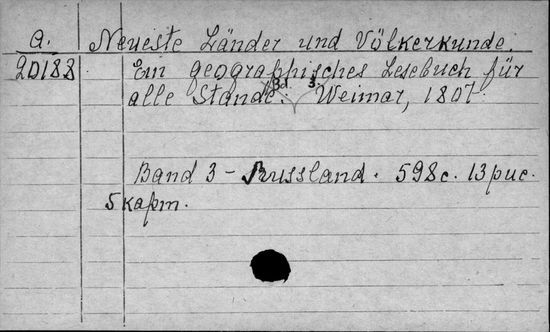 a. Neueste Länder und Völkerkunde.
20188 Ein geographisches Lesebuch für
alle Stände. Bd. 3. Weimar, 1807.
Band 3 - Russland. 598c. 13 рис.
5 карт.